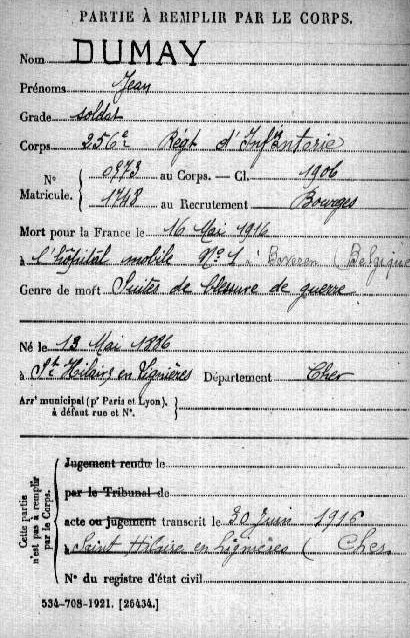 PARTIE À REMPLIR PAR LE CORPS.
Nom DUMAY
Prénoms Jean
Grade soldat
Corps 256e Régt d'Infanterie
N° Matricule. { 0973 au Corps. — Cl. 1906
1748 au Recrutement Bourges
Mort pour la France le 16 Mai 1916
à l'hôpital mobile N° 1 à Beveren (Belgique
Genre de mort Suites de blessure de guerre
Né le 13 Mai 1886
à St Hilaire en Lignières Département Cher
Arrt municipal (pr Paris et Lyon),
à défaut rue et N°.
Cette partie n'est pas à remplir par le Corps.
Jugement rendu le
par le Tribunal de
acte ou jugement transcrit le 30 Juin 1916
à Saint Hilaire en Lignières (Cher
N° du registre d'état civil
534-708-1921. [26434.]